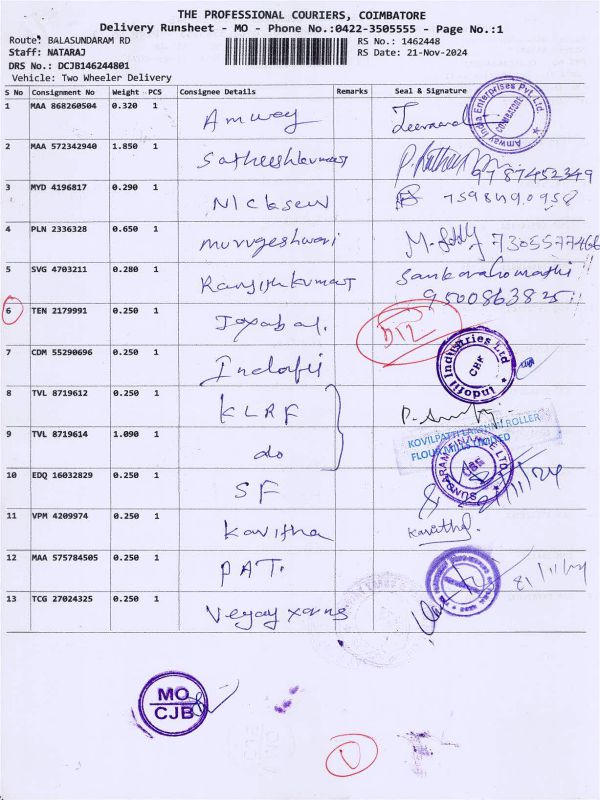 THE PROFESSIONAL COURIERS, COIMBATORE
Delivery Runsheet - MO - Phone No.:0422-3505555 - Page No.:1
Route: BALASUNDARAM RD RS No.: 1462448
Staff: NATARAJ RS Date: 21-Nov-2024
DRS No.: DCJB146244801
Vehicle: Two Wheeler Delivery
S No Consignment No Weight PCS Consignee Details Remarks Seal & Signature
1 MAA 868260504 0.320 1 Amway
Amway India Enterprises Pvt Ltd. COIMBATORE
2 MAA 572342940 1.850 1 Satheeshkumar 9787452349
3 MYD 4196817 0.290 1 Nickson 7598490958
4 PLN 2336328 0.650 1 Murugeshwari 7305577466
5 SVG 4703211 0.280 1 Ranjithkumar
9500863825
6 TEN 2179991 0.250 1
7 CDM 55290696 0.250 1 Indofil
Indofil Industries Ltd CBE
8 TVL 8719612 0.250 1 KLRF
KOVILPATTI LAKSHMI ROLLER
FLOUR MILLS LIMITED
9 TVL 8719614 1.090 1 do
10 EDQ 16032829 0.250 1 SF
SUNDARAM FINANCE LTD. CBE
11 VPM 4209974 0.250 1 Kavitha Kavitha
12 MAA 575784505 0.250 1 PAT.
13 TCG 27024325 0.250 1
MO
CJB